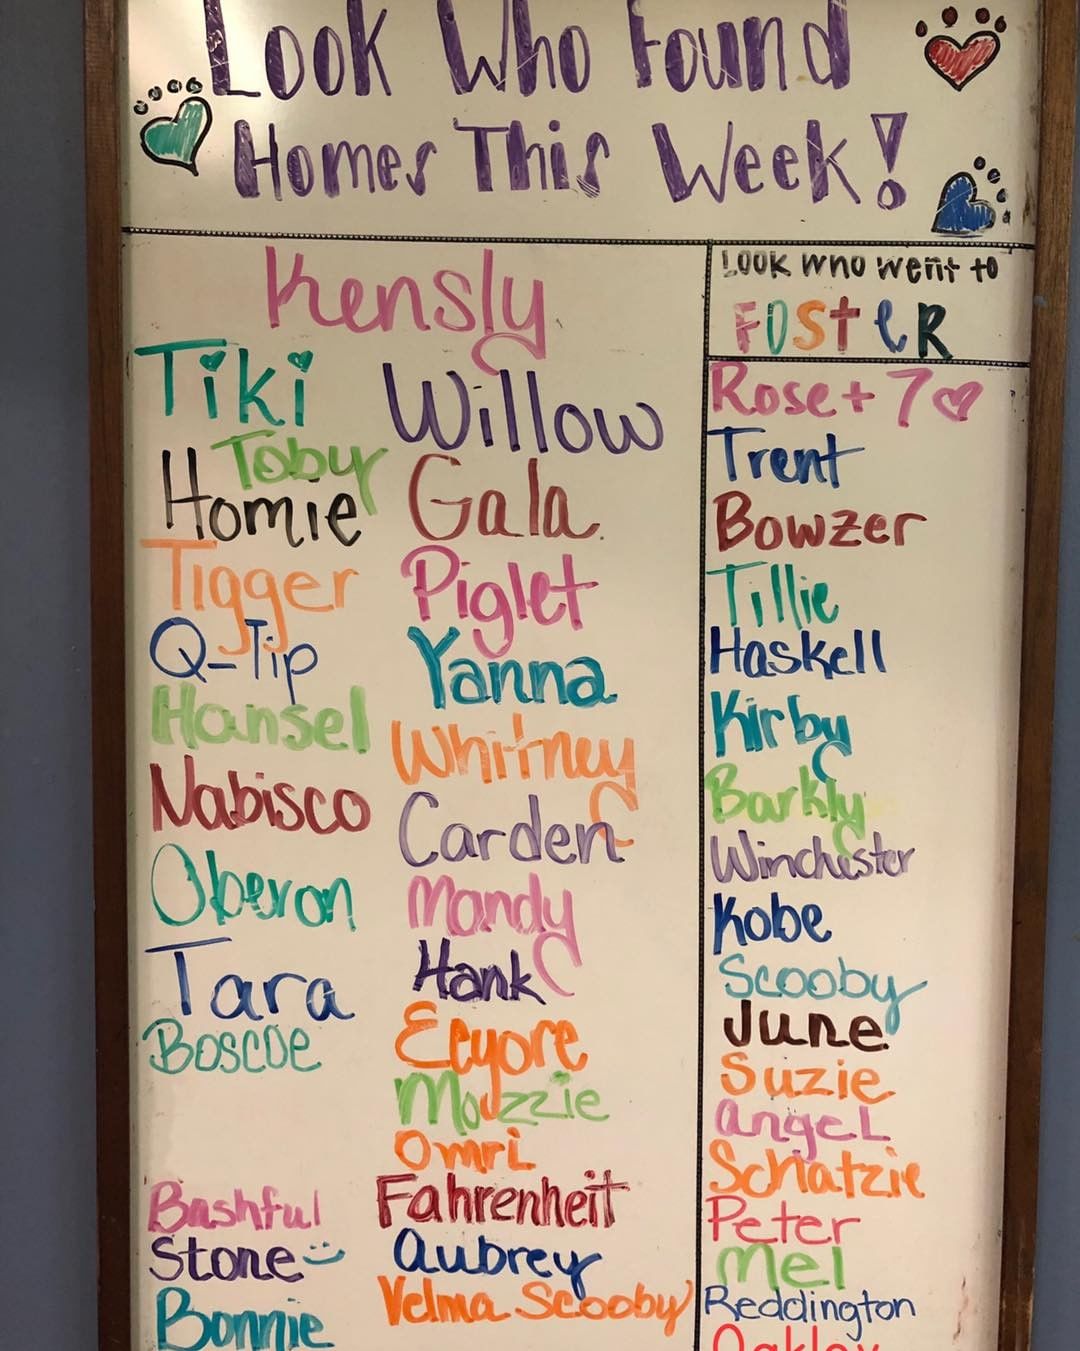 Look Who Found
Homes This Week!
Kensly
Tiki
Toby
Homie
Tigger
Q-Tip
Hansel
Nabisco
Oberon
Tara
Boscoe
Bashful
Stone
Bonnie
Willow
Gala
Piglet
Yanna
Whitney
Carden
Mandy
Hank
Eeyore
Mozzie
Omri
Fahrenheit
Aubrey
Velma Scooby
Look who went to
FOSTER
Rose + 7
Trent
Bowzer
Tillie
Haskell
Kirby
Barkly
Winchester
Kobe
Scooby
June
Suzie
Angel
Schatzie
Peter
Mel
Reddington
Oakley